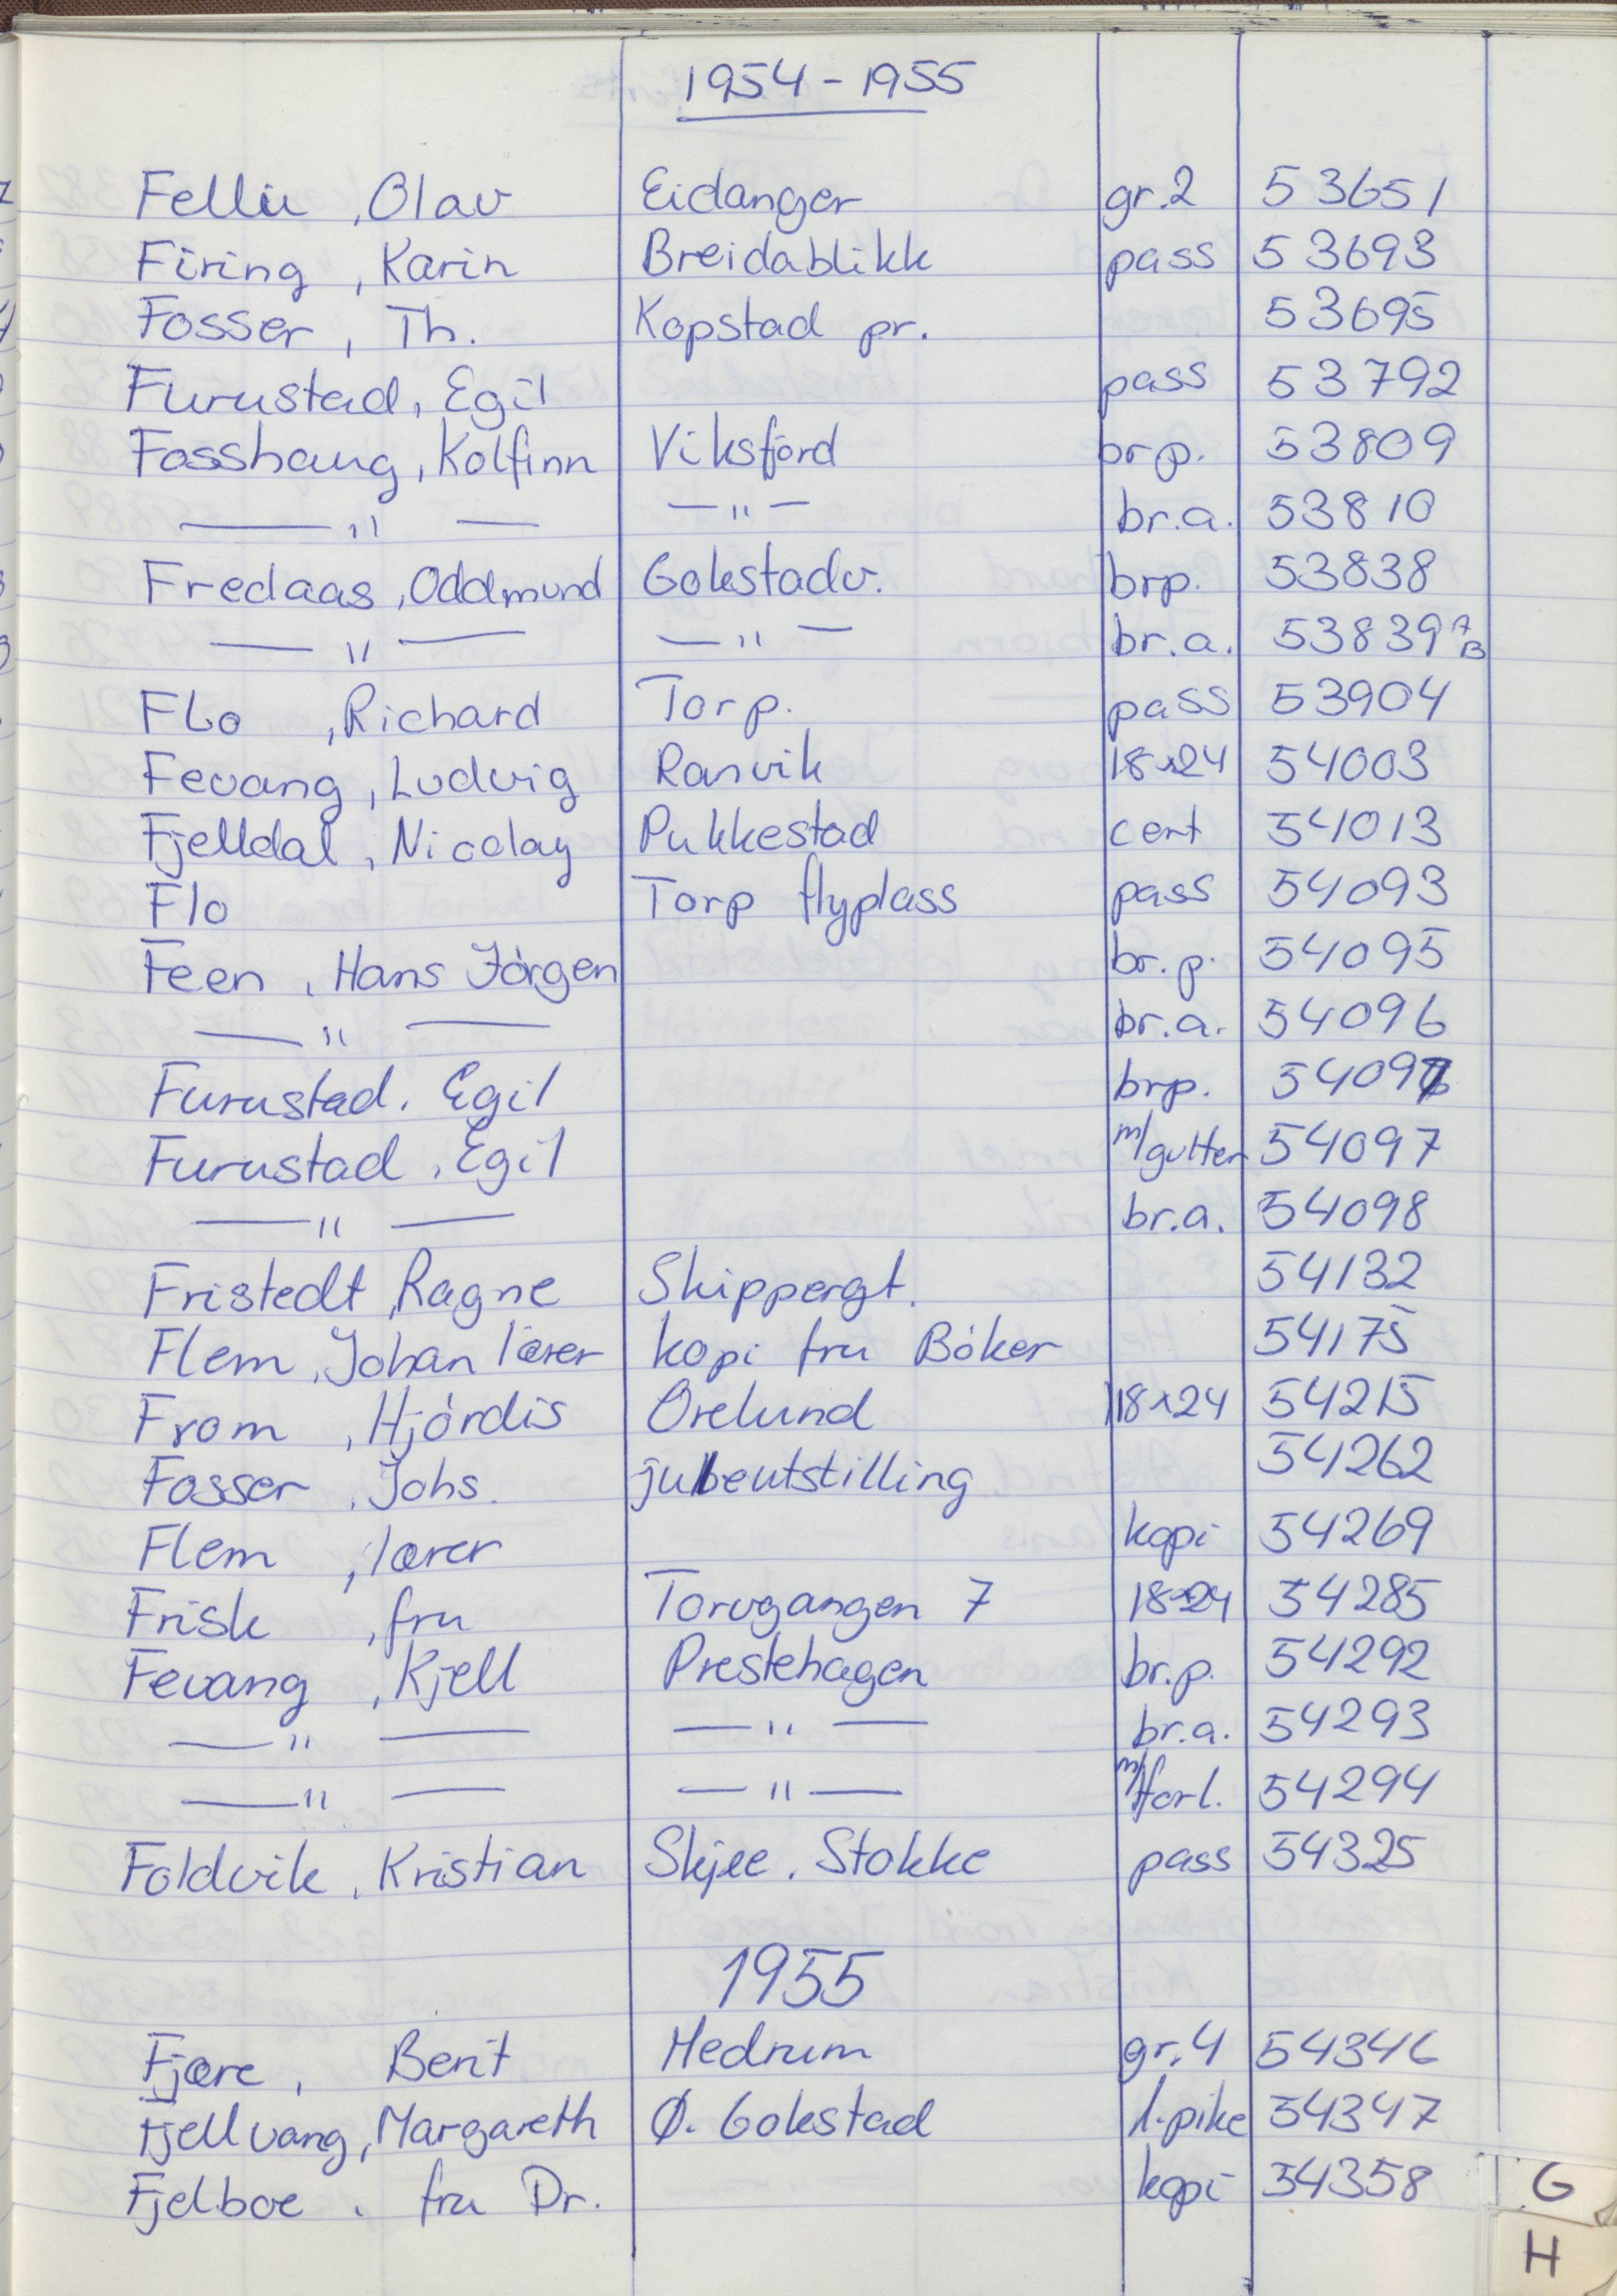 1954-1955
Fellie, Olav Eidanger gr.2 53651
Firing, Karin Breidablikk pass 53693
Fosser, Th. Kopstad pr. 53695
Furustad, Egil pass 53792
Fosshaug, Kolfinn Viksfjord brp. 53809
— " — — " — br.a. 53810
Fredaas, Oddmund Gokstadv. brp. 53838
— " — — " — br.a. 53839 A B
Flo, Richard Torp. pass 53904
Fevang, Ludvig Ranvik 18x24 54003
Fjelldal, Nicolay Pukkestad cert 54013
Flo Torp flyplass pass 54093
Feen, Hans Jörgen br.p. 54095
— " — br.a. 54096
Furustad, Egil brp. 54097
Furustad, Egil m/gutten 54097
— " — br.a. 54098
Fristedt, Ragne Skippergt. 54132
Flem, Johan lærer kopi fru Böker 54175
From, Hjördis Orelund 18x24 54215
Fosser, Johs. juleutstilling 54262
Flem, lærer kopi 54269
Frisk, fru Torvgangen 7 18x24 54285
Fevang, Kjell Prestehagen br.p. 54292
— " — — " — br.a. 54293
— " — — " — m/forl. 54294
Foldvik, Kristian Skjee. Stokke pass 54325
1955
Fjære, Berit Hedrum gr.4 54346
Fjellvang, Margareth Ø. Gokstad l.pike 54347
Fjelboe, fru Dr. kopi 54358
G
H